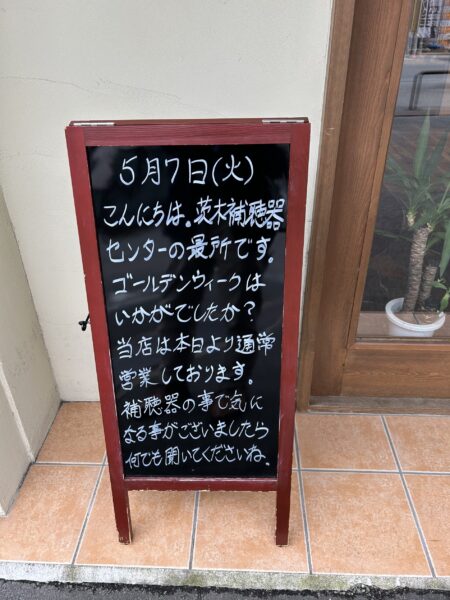 5月7日(火)
こんにちは。茨木補聴器
センターの最所です。
ゴールデンウィークは
いかがでしたか?
当店は本日より通常
営業しております。
補聴器の事で気に
なる事がございましたら
何でも聞いてくださいね。